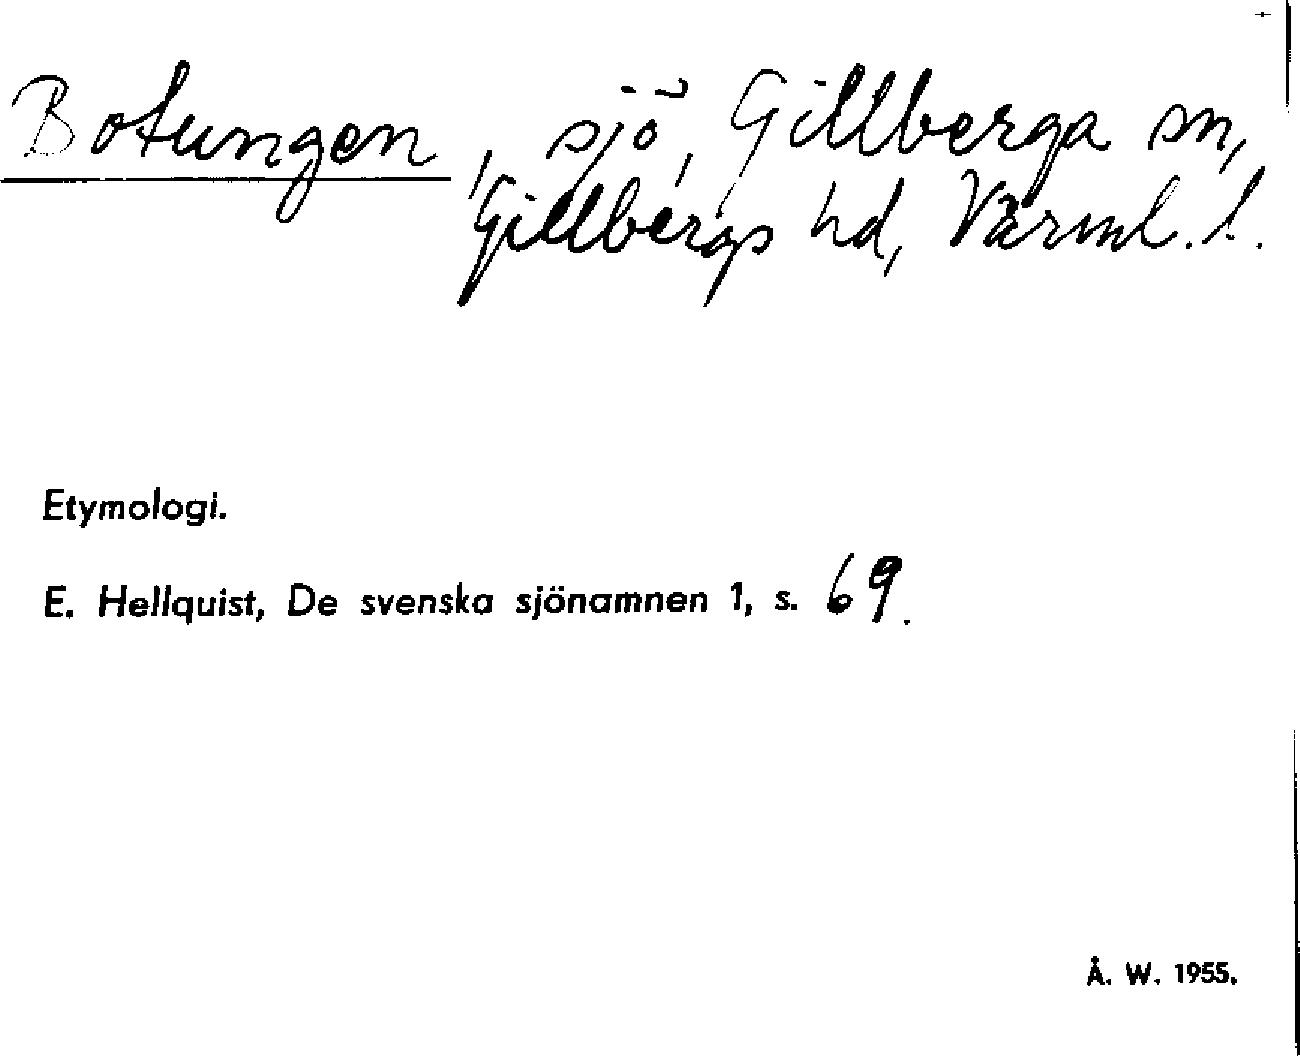 Botungen, sjö, Gillberga sn,
Gillbergs hd, Värml. l.
Etymologi.
E. Hellquist, De svenska sjönamnen 1, s. 69.
Å. W. 1955.